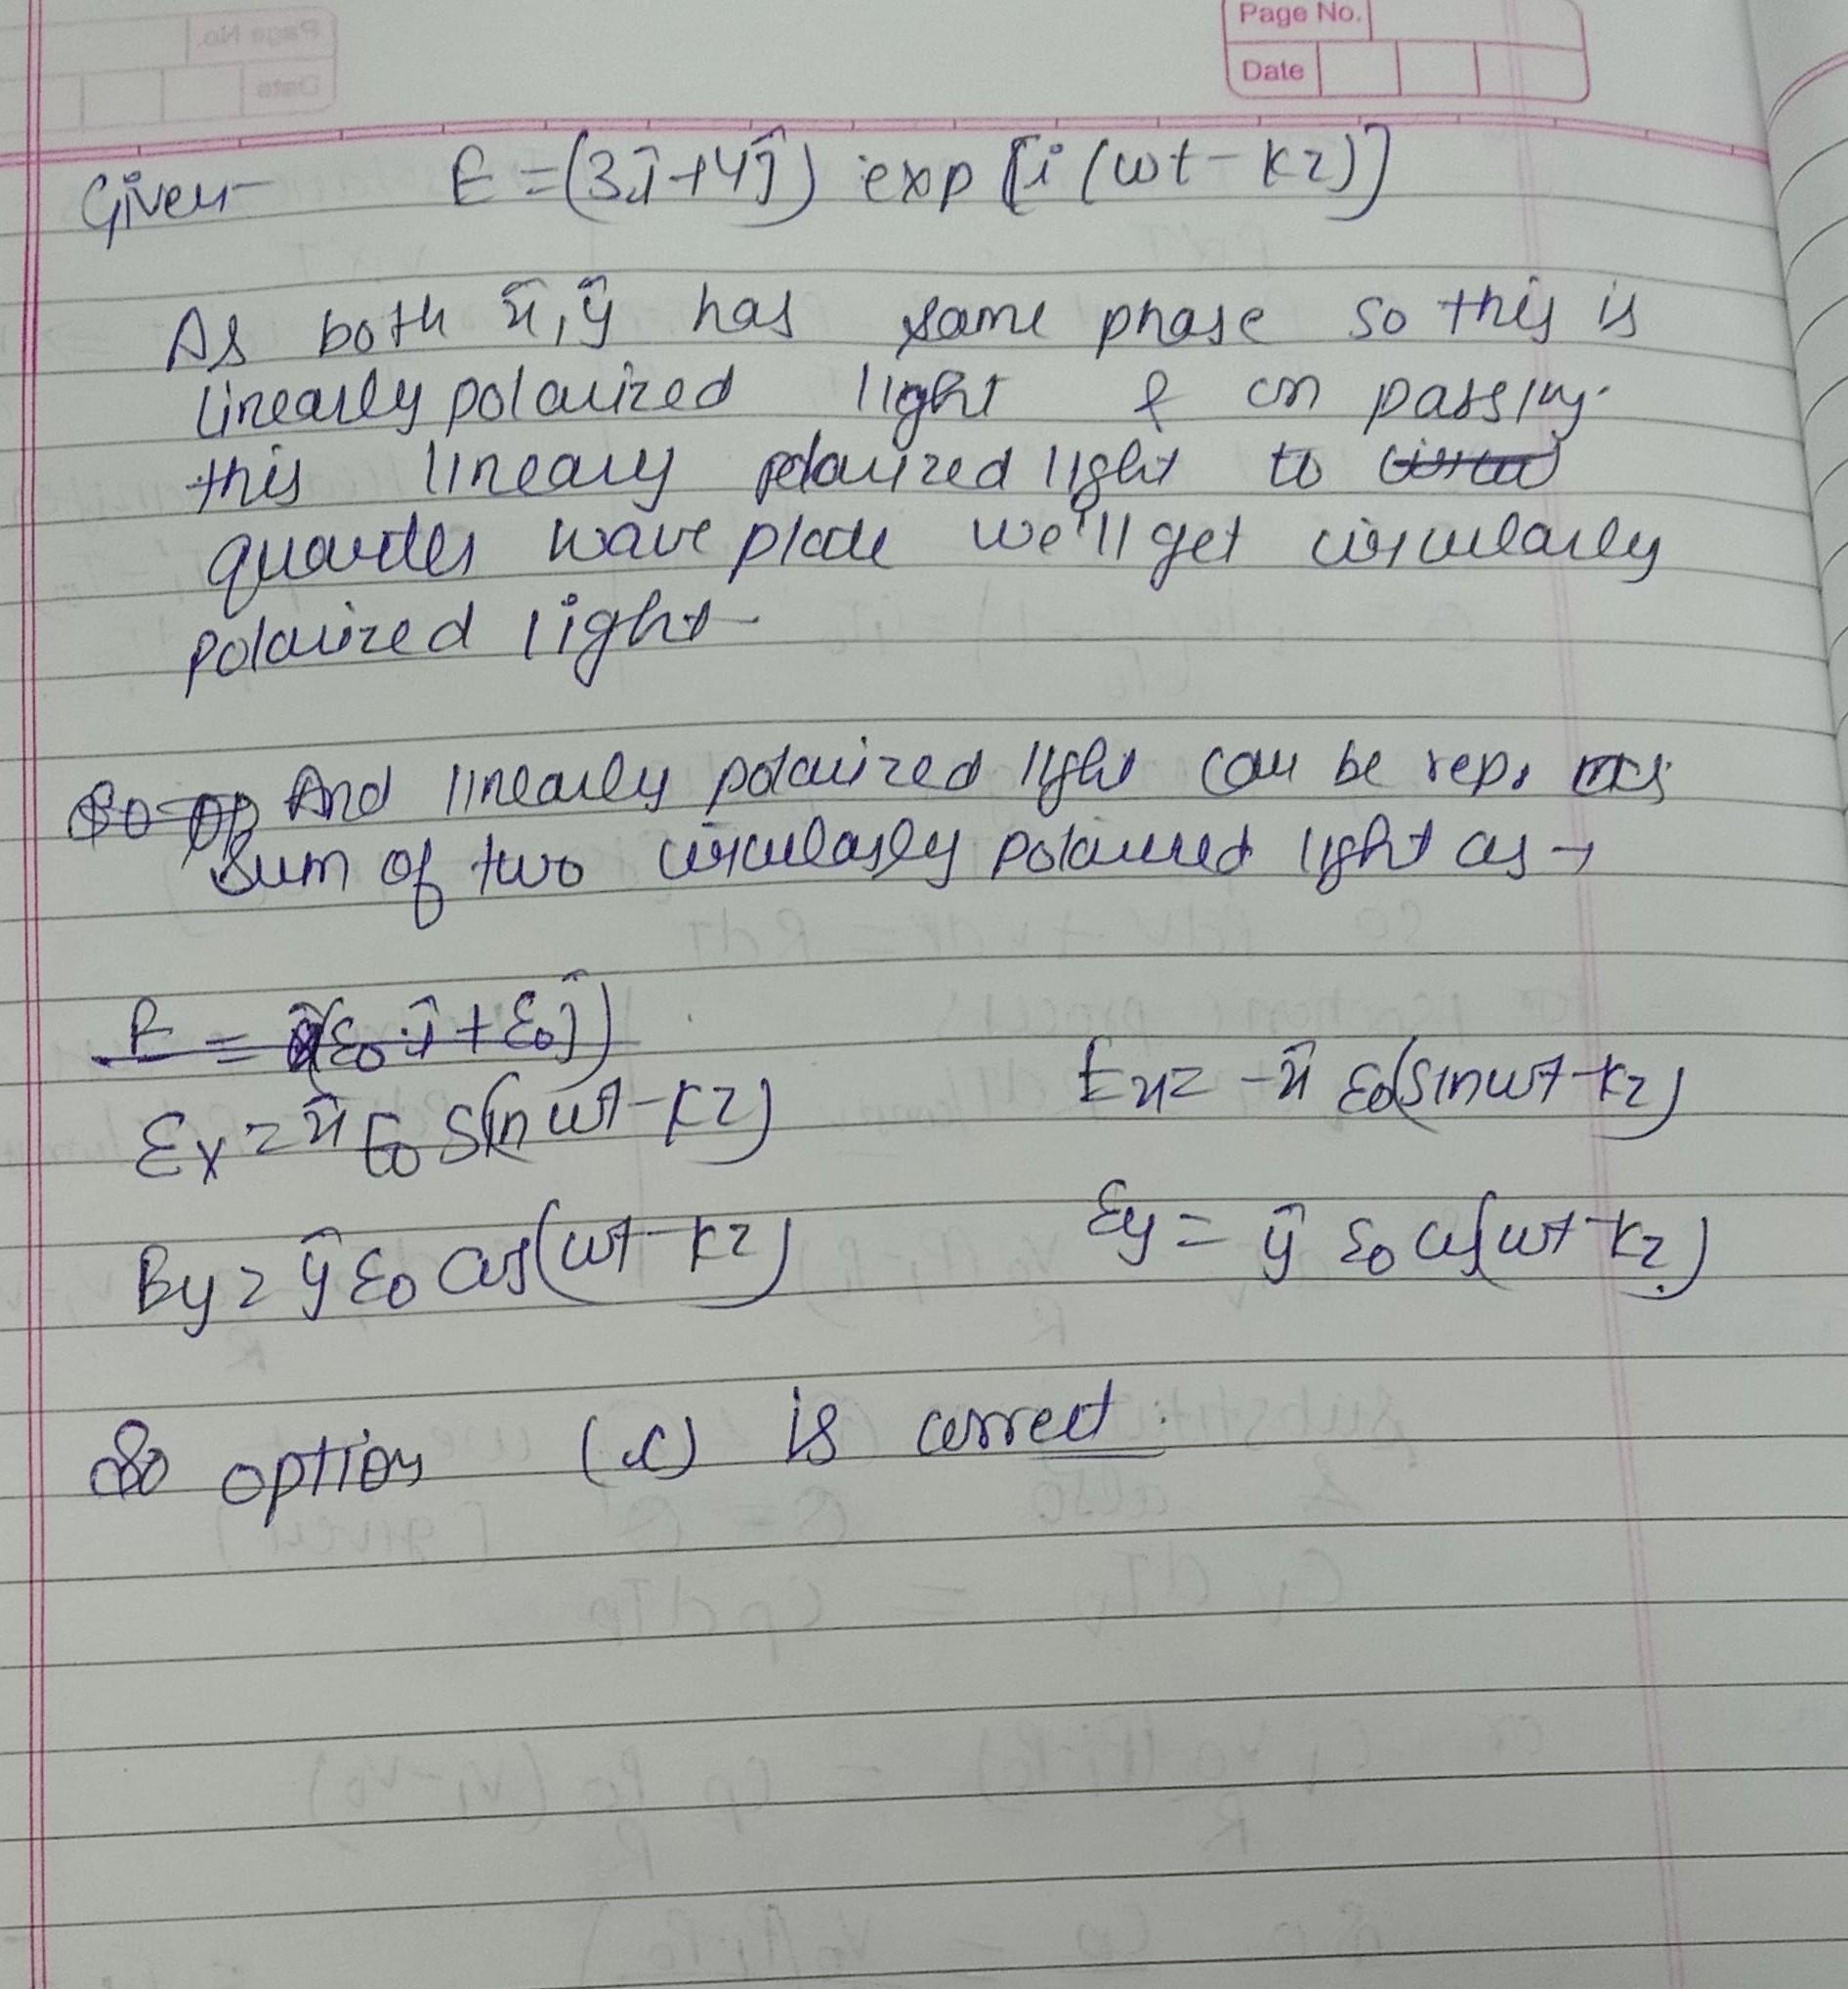 Page No.
Date
Given- E = (3î+4ĵ) exp [i (wt - kz)]
As both x̂, ŷ has same phase so this is
linearly polarized light & on passing
this lineary polarized light to
quarter wave plate we'll get circularly
polarized light-
And linearly polarized light can be rep. as
Sum of two circularly polarized light as →
E = (ε₀ î + ε₀ ĵ)
Ex = x̂ E₀ Sin(wt - kz) Ex = -x̂ ε₀(sinwt - kz)
By = ŷ ε₀ cos(wt - kz) Ey = ŷ ε₀ cos(wt - kz)
So option (c) is correct.